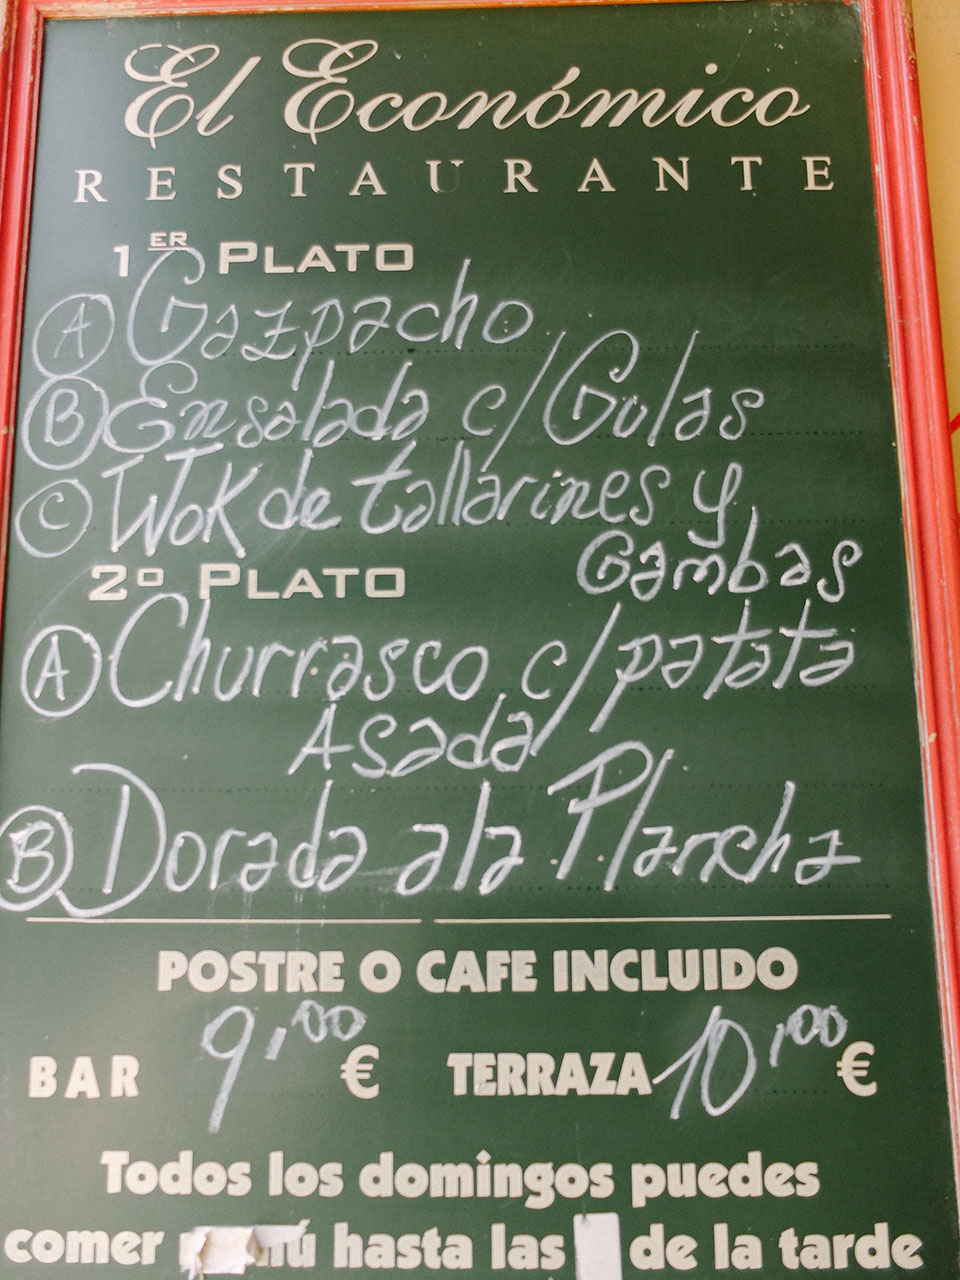 El Económico
RESTAURANTE
1ER PLATO
A Gazpacho
B Ensalada c/Gulas
C Wok de tallarines y
Gambas
2º PLATO
A Churrasco c/patata
Asada
B Dorada a la Plancha
POSTRE O CAFE INCLUIDO
BAR 9,00 € TERRAZA 10,00 €
Todos los domingos puedes
comer hasta las de la tarde